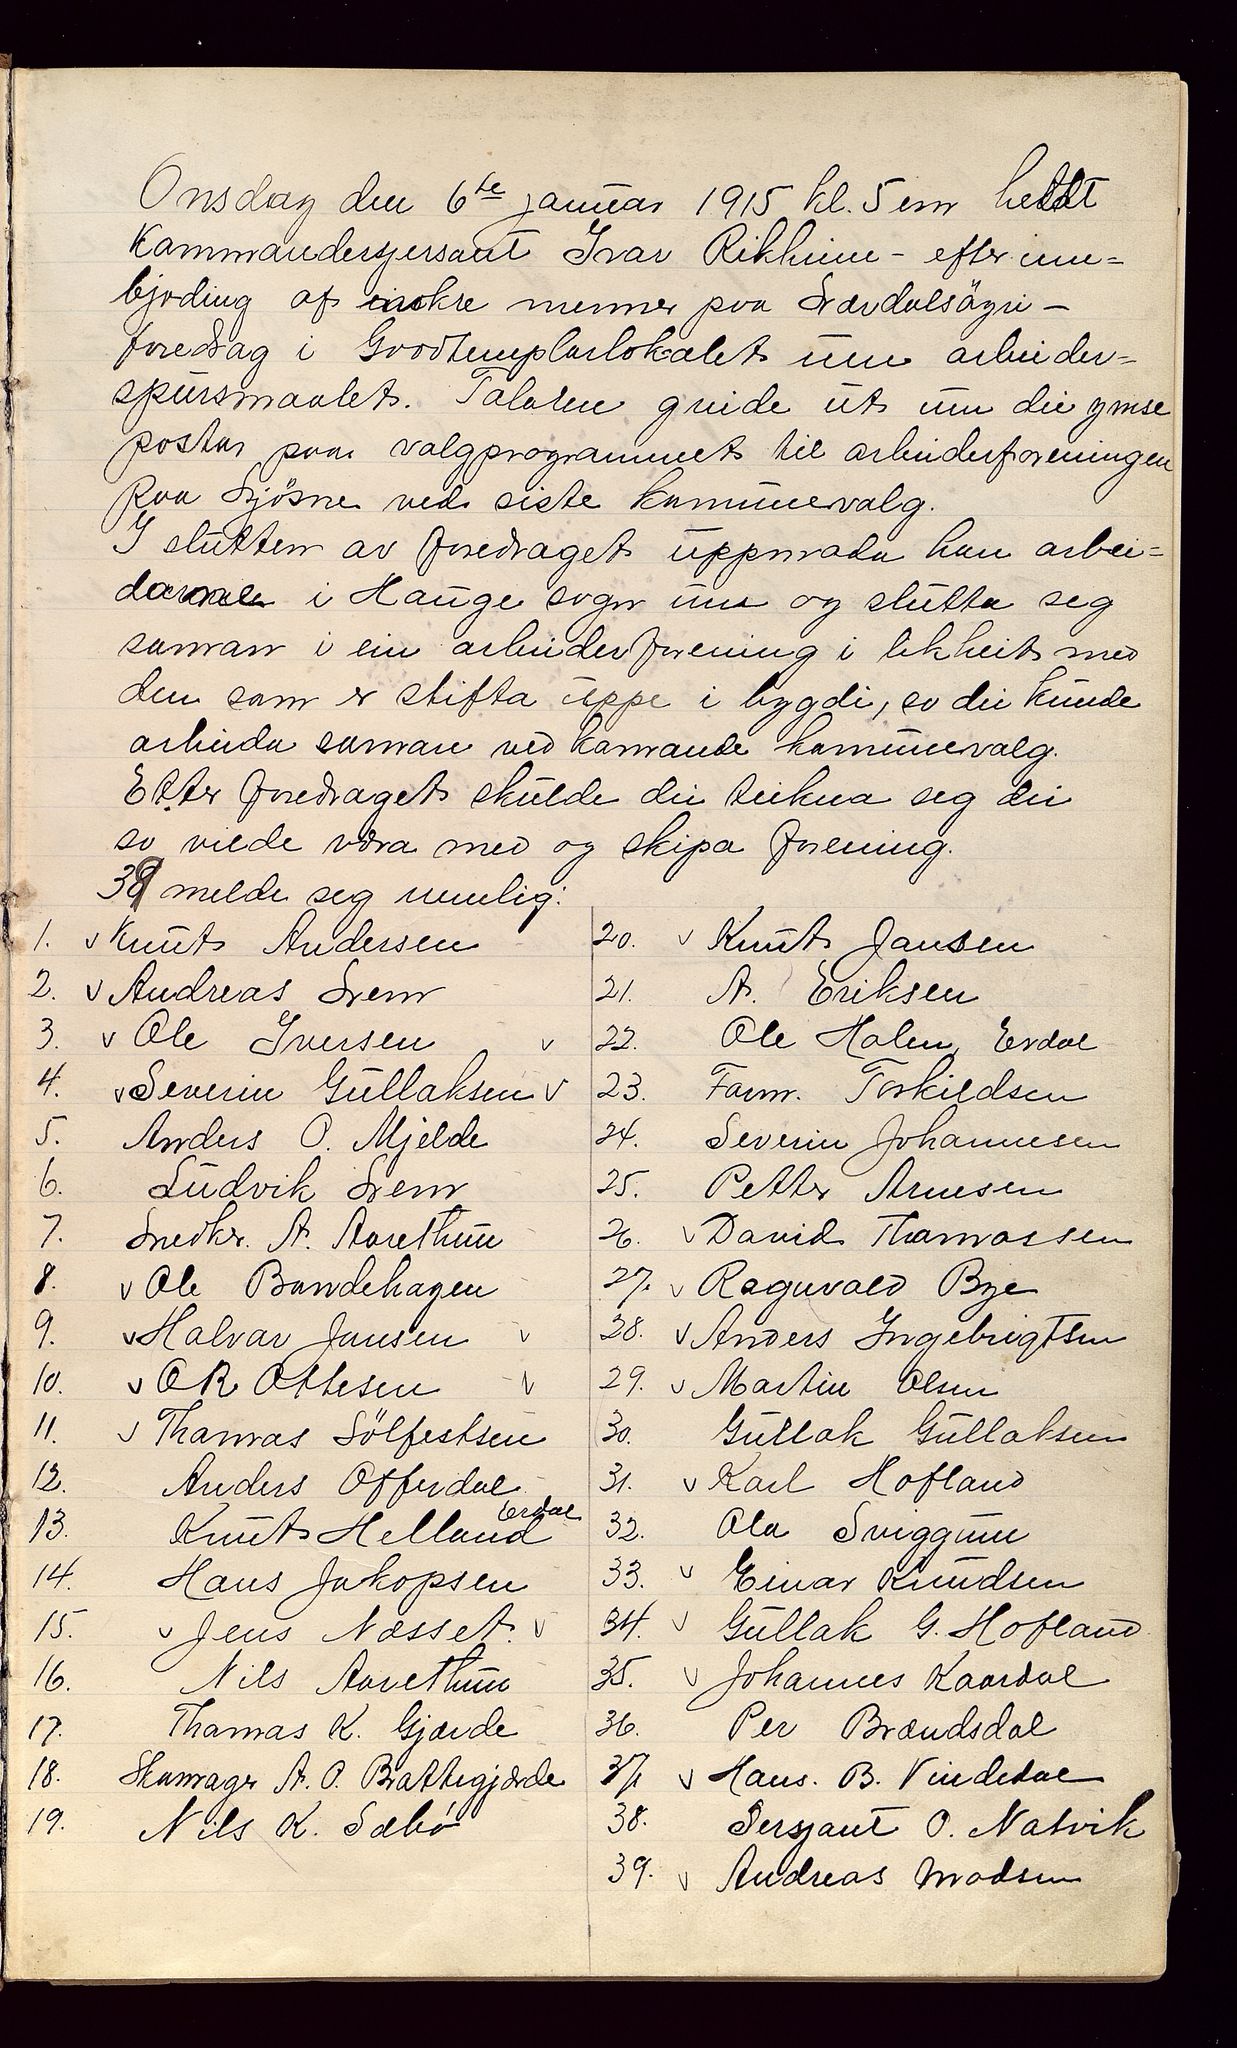 Onsdag den 6te januar 1915 kl. 5 em heldt
Kommandersjersant Ivar Rikheim - efter inn=
bjoding af nokre menner paa Lærdalsöyri -
foredrag i Goodtemplarlokalet um arbeider=
spursmaalet. Talaren greide ut um dei ymse
postar paa valgprogrammet til arbeiderforeningen
paa Ljösne ved siste kommunevalg.
I slutten av foredraget uppmoda han arbei=
darane i Hauge sogn um og slutta seg
saman i ein arbeiderforening i likheit med
den som er stifta uppe i bygdi, so dei kunde
arbeida saman ved komande komunevalg.
Etter foredraget skulde dei teikna seg dei
so vilde væra med og skipa forening.
39 melde seg nemlig:
1. v Knut Andersen
2. v Andreas Grem
3. v Ole Iversen v
4. v Severin Gullaksen v
5. Anders O. Mjelde
6. Ludvik Grem
7. Snedkr. A. Aarethun
8. v Ole Bandehagen
9. v Halvar Jansen v
10. v O R Ottesen v
11. v Thomas Sölfestsen
12. Anders Offerdal
13. Knut Helland Erdal
14. Hans Jakopsen
15. v Jens Næsset. v
16. Nils Aarethun
17. Thomas K. Gjærde
18. Skomagr A. O. Brattegjærde
19. Nils K. Sæbö
20. v Knut Jansen
21. A. Eriksen
22. Ole Holen, Erdal
23. Form. Torkildsen
24. Severin Johannesen
25. Petter Arnesen
26. v David Thomassen
27. v Ragnvald Bye
28. v Anders Ingebrigtsen
29. v Martin Olsen
30. Gullak Gullaksen
31. v Karl Hofland
32. Ola Sviggum
33. v Einar Knudsen
34. v Gullak G. Hofland
35. v Johannes Kaardal
36. Per Brændsdal
37. v Hans. B. Vindedal
38. Sersjant O. Natvik
39. v Andreas Madsen